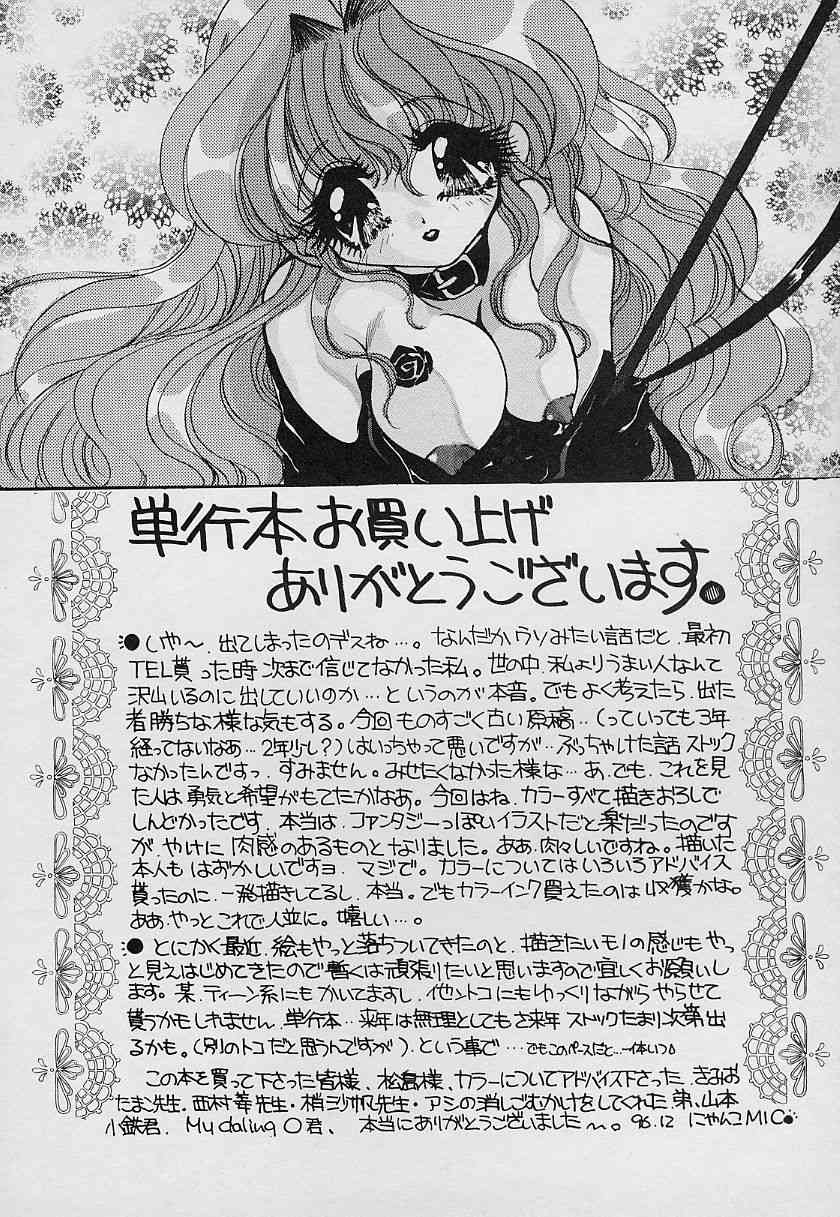 単行本お買い上げ
ありがとうございます。
●いや～、出てしまったのデスね…。なんだかウソみたい話だと、最初
TEL貰った時次まで信じてなかった私。世の中、私よりうまい人なんて
沢山いるのに出していいのか…というのが本音。でもよく考えたら、出た
者勝ちな様な気もする。今回ものすごく古い原稿‥(っていっても3年
経ってないなあ…2年少し?)はいっちゃって悪いですが‥ぶっちゃけた話ストック
なかったんですっ。すみません。みせたくなかった様な…あ、でも、これを見
た人は勇気と希望がもてたかなあ。今回はね、カラーすべて描きおろしで
しんどかったです、本当は、ファンタジーっぽいイラストだと楽だったのです
が、やけに肉感のあるものとなりました。ああ、肉々しいですね。描いた
本人もはおかしいですヨ、マジで。カラーについてはいろいろアドバイス
貰ったのに、一発描きしてるし、本当。でもカラーインク買えたのは収獲かな。
ああ、やっとこれで人並に。嬉しい…。
●とにかく最近、絵もやっと落ちついてきたのと、描きたいモノの感じもやっ
と見えはじめてきたので暫くは頑張りたいと思いますので宜しくお願いし
ます。某、ティーン系にもかいてますし、他ントコにもゆっくりながらやらせて
貰うかもしれません、単行本‥来年は無理としてもさ来年ストックたまり次第出
るかも。(別のトコだと思うんですが)、という事で…でもこのペースだと…一体いつ
この本を買って下さった皆様、松島様、カラーについてアドバイス下さった、きみお
たまこ先生・西村 先生・梢沙帆先生・アシの消しごむかけをしてくれた、弟、山本
小鉄君、My daling O君、本当にありがとうございました～。96.12 にゃんこMIC